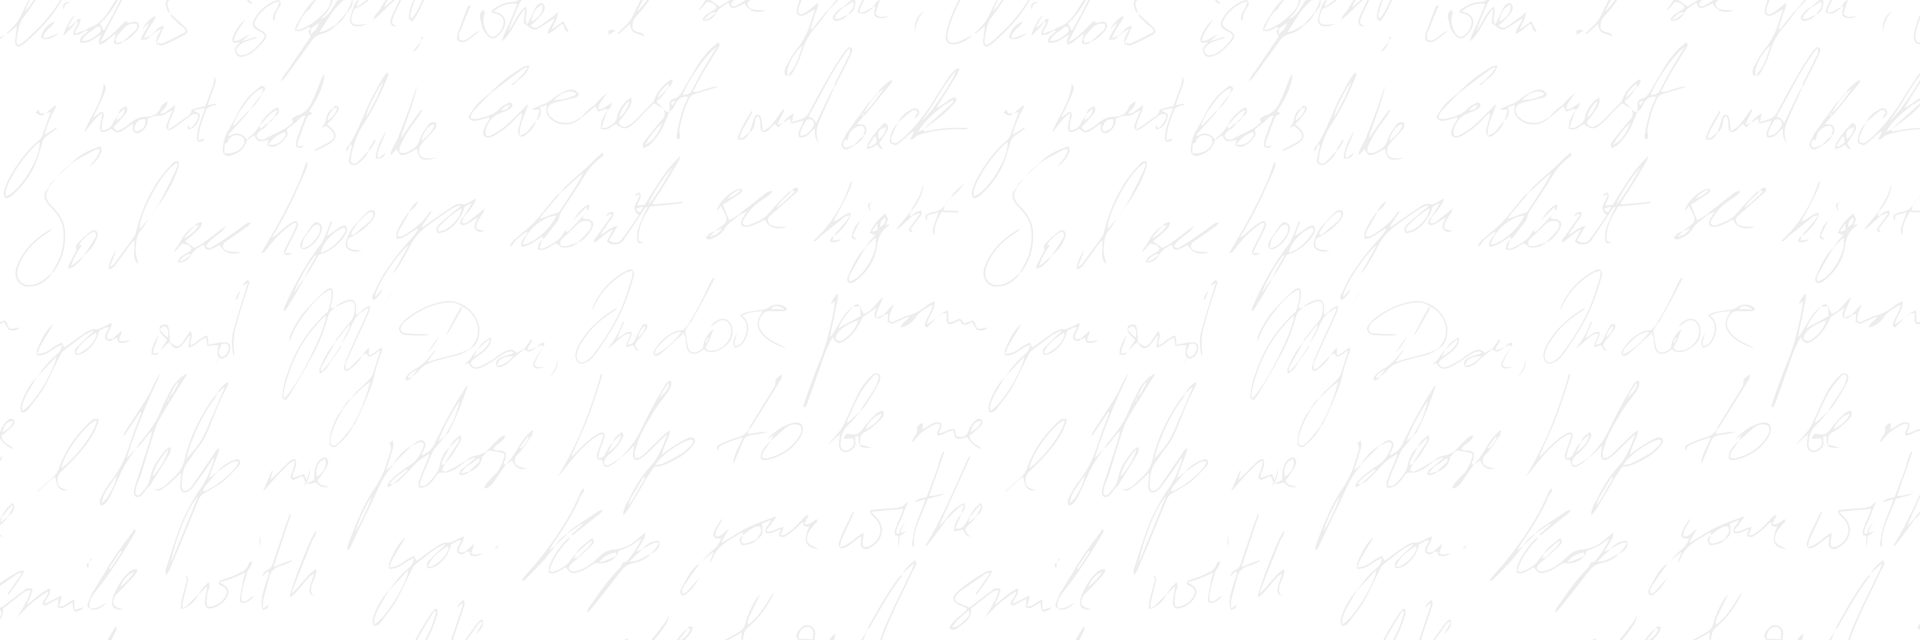 Windows is open, when I see you, Windows is open, when I see you,
y heart beats like Everest and back y heart beats like Everest and back
So I see hope you don't see night So I see hope you don't see night
you and My Dear, One Love you and My Dear, One Love
I Help me please help to be me I Help me please help to be
smile with you. Keep your withe smile with you. Keep your with